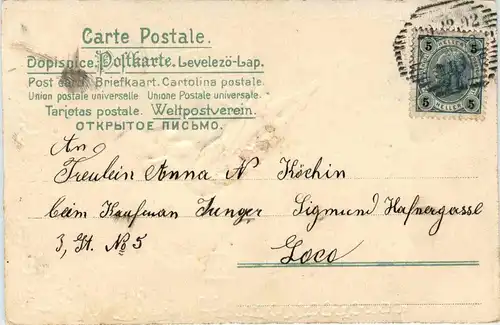 Carte Postale.
Dopisnice. Postkarte. Levelező-Lap.
Post card. Briefkaart. Cartolina postale.
Union postale universelle. Unione Postale universale.
Tarjetas postale. Weltpostverein.
ОТКРЫТОЕ ПИСЬМО.
5 5
5 HELLER 5
An
Freulein Anna N Köchin
beim Kaufman Junger Sigmund Hafnergasse
3, St. No 5
Loco